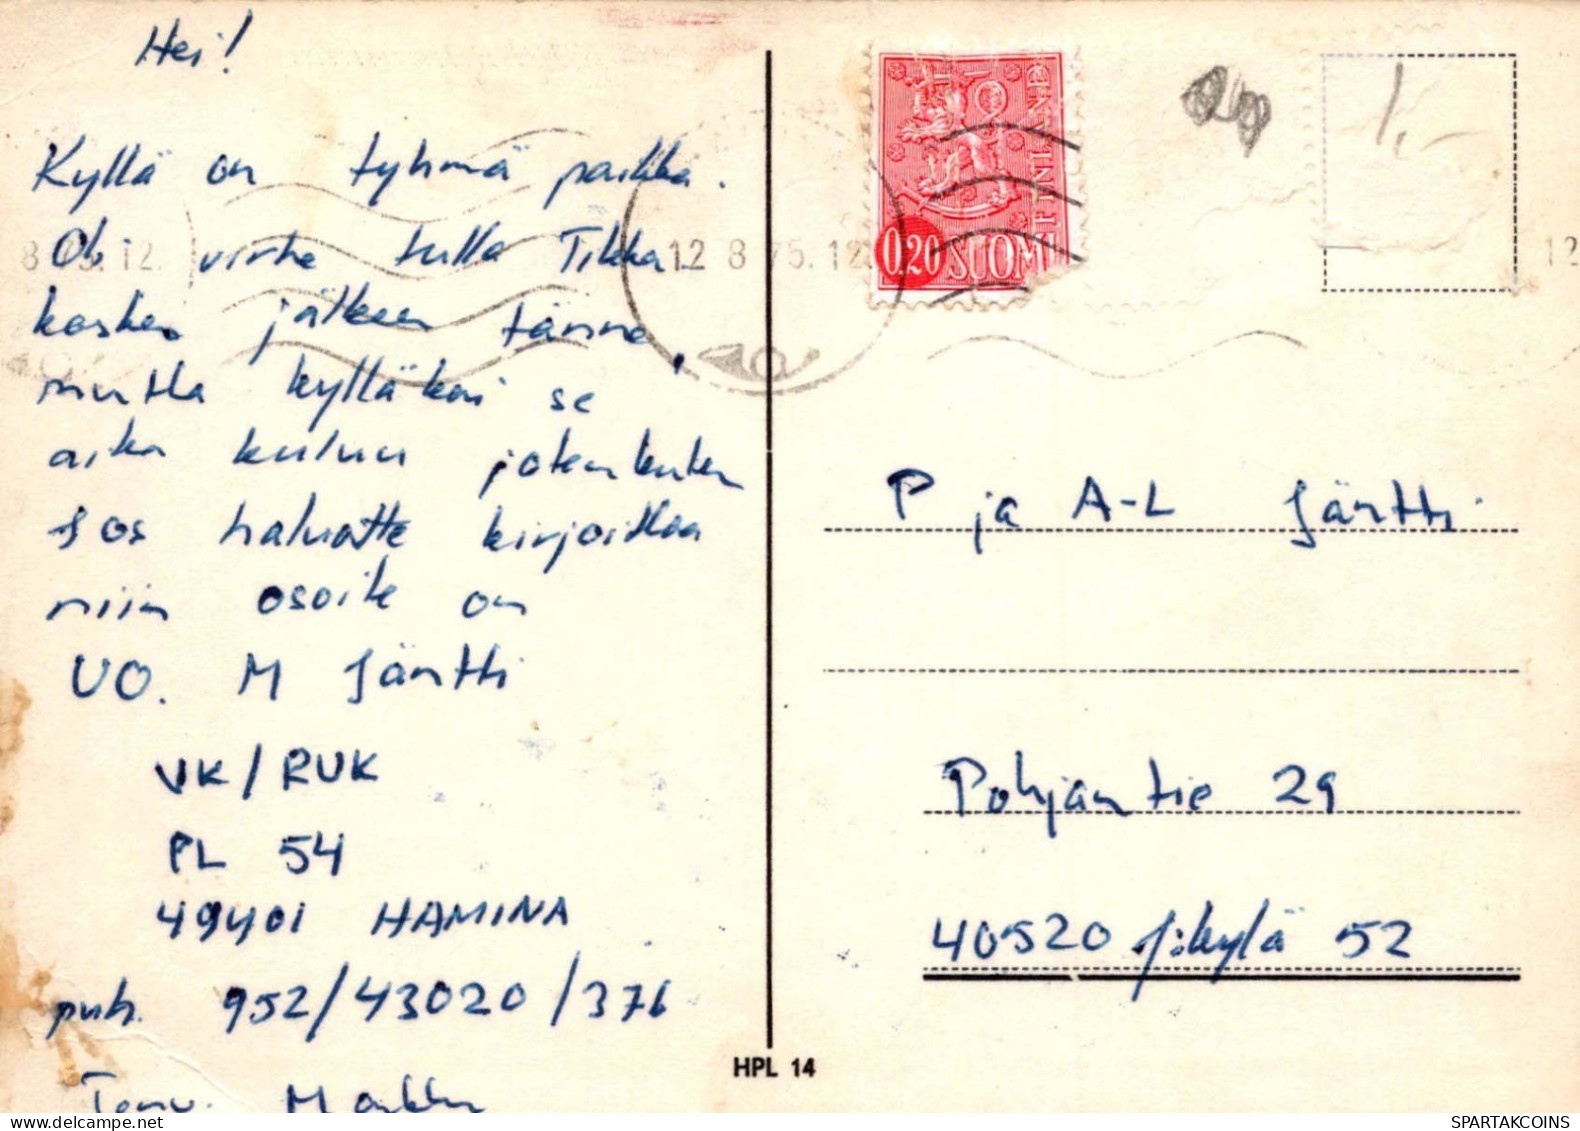 Hei!
Kyllä on tyhmä paikka.
Oli virhe tulla Tikka-
kosken jälkeen tänne,
mutta kylläkai se
aika kuluu jotenkuten
Jos haluatte kirjoittaa
niin osoite on
UO. M Jäntti
VK/RUK
PL 54
49401 HAMINA
puh. 952/43020/376
Terv. Markku
8 75.12
12 8 75.12
12
FINLAND
0,20 SUOMI
1,-
P ja A-L Jäntti
Pohjantie 29
40520 J:kylä 52
HPL 14
SPARTAKCOINS
www.delcampe.net